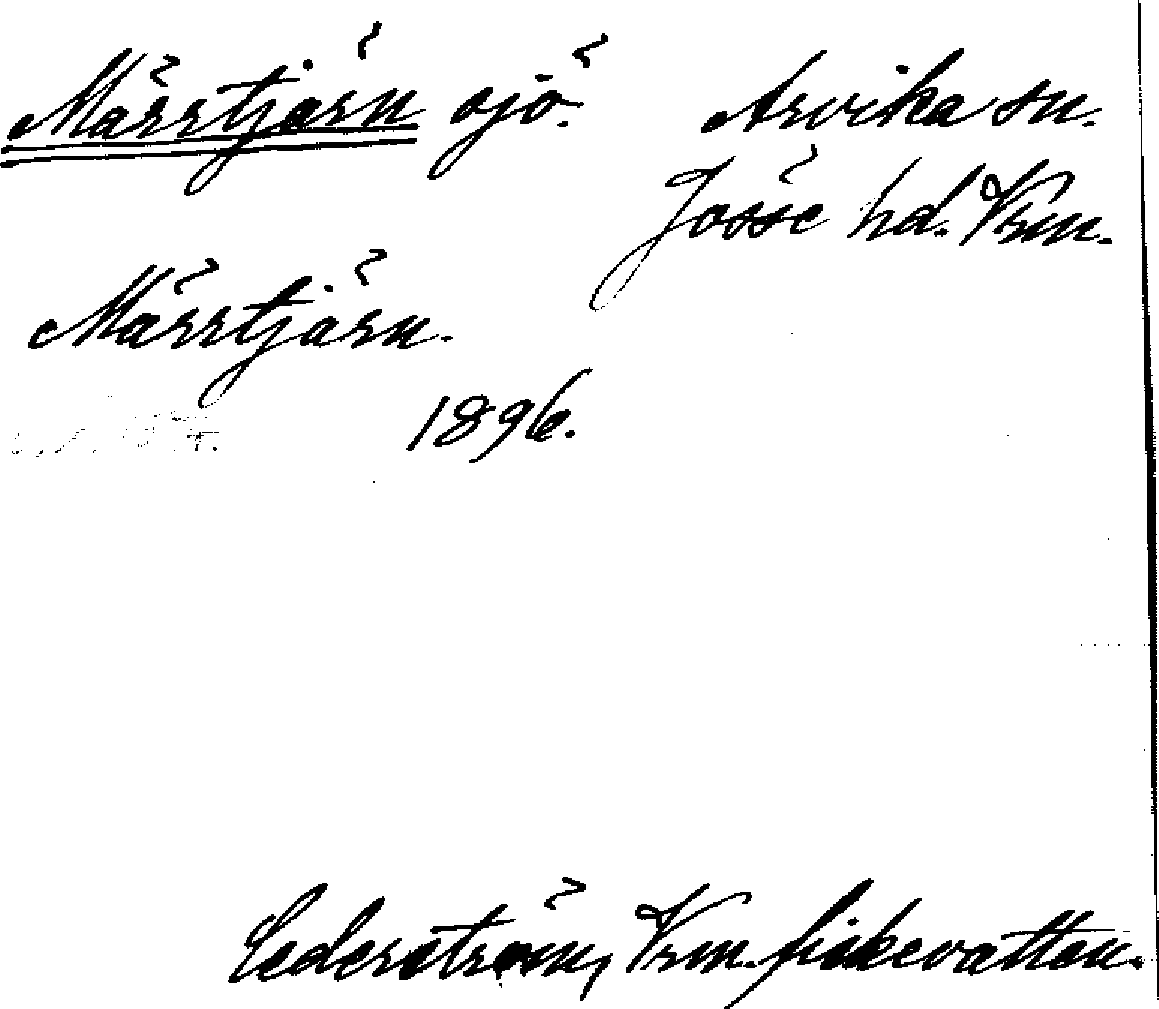 Märrtjärn sjö. Arvika sn.
Jösse hd. Vrm.
Märrtjärn.
1896.
Cederström, Vrm. fiskevatten.